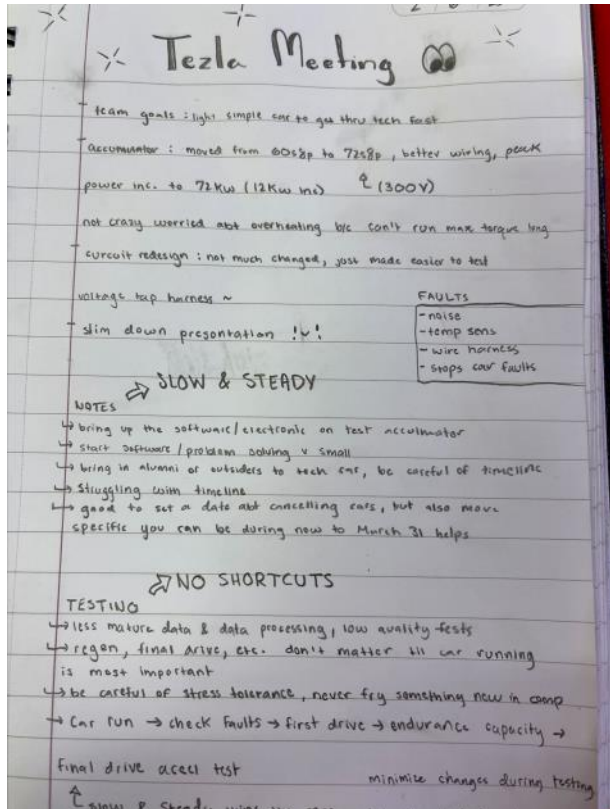 Tezla Meeting
team goals : light simple car to get thru tech fast
accumulator : moved from 60s8p to 72s8p, better wiring, peak
power inc. to 72KW (12KW inc) (300V)
not crazy worried abt overheating b/c can't run max torque long
curcuit redesign : not much changed, just made easier to test
voltage tap harness ~
slim down presentation !~!
FAULTS
- noise
- temp sens
- wire harness
- stops car faults
SLOW & STEADY
NOTES
↳ bring up the software/electronic on test accumulator
↳ start software/problem solving v small
↳ bring in alumni or outsiders to tech car, be careful of timeline
↳ struggling with timeline
↳ good to set a date abt cancelling cars, but also more
specific you can be during now to March 31 helps
NO SHORTCUTS
TESTING
↳ less mature data & data processing, low quality tests
↳ regen, final drive, etc. don't matter til car running
is most important
↳ be careful of stress tolerance, never try something new in comp
→ Car run → check faults → first drive → endurance capacity →
final drive accel test
minimize changes during testing
slow & steady wins the